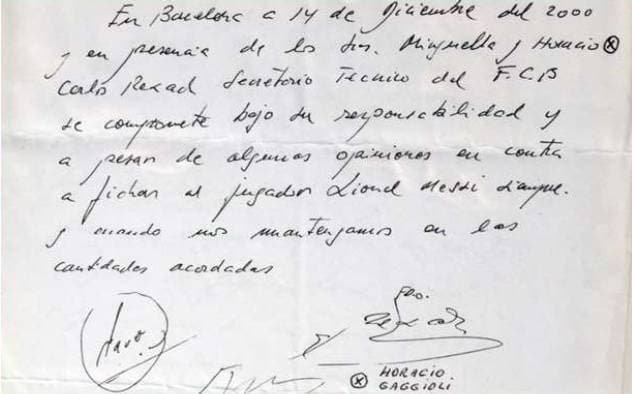 En Barcelona a 14 de Diciembre del 2000
y en presencia de los Srs. Minguella y Horacio ⊗
Carlo Rexad Secretorio Tecnico del F.C.B
se compromete bajo su responsabilidad y
a pesar de algunas opiniones en contra
a fichar al jugador Lionel Messi siempre.
y cuando nos mantengamos en las
cantidades acordadas
Fdo.
⊗ HORACIO
GAGGIOLI